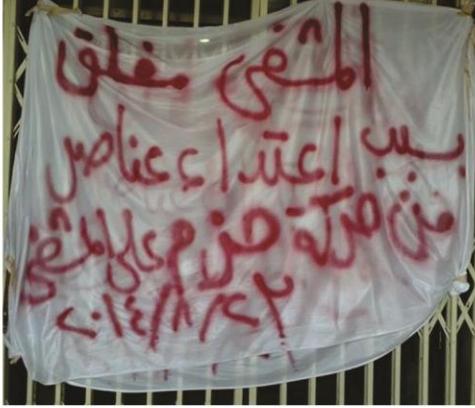 المشفى مغلق
بسبب اعتداء عناصر
من حركة حزم على المشفى